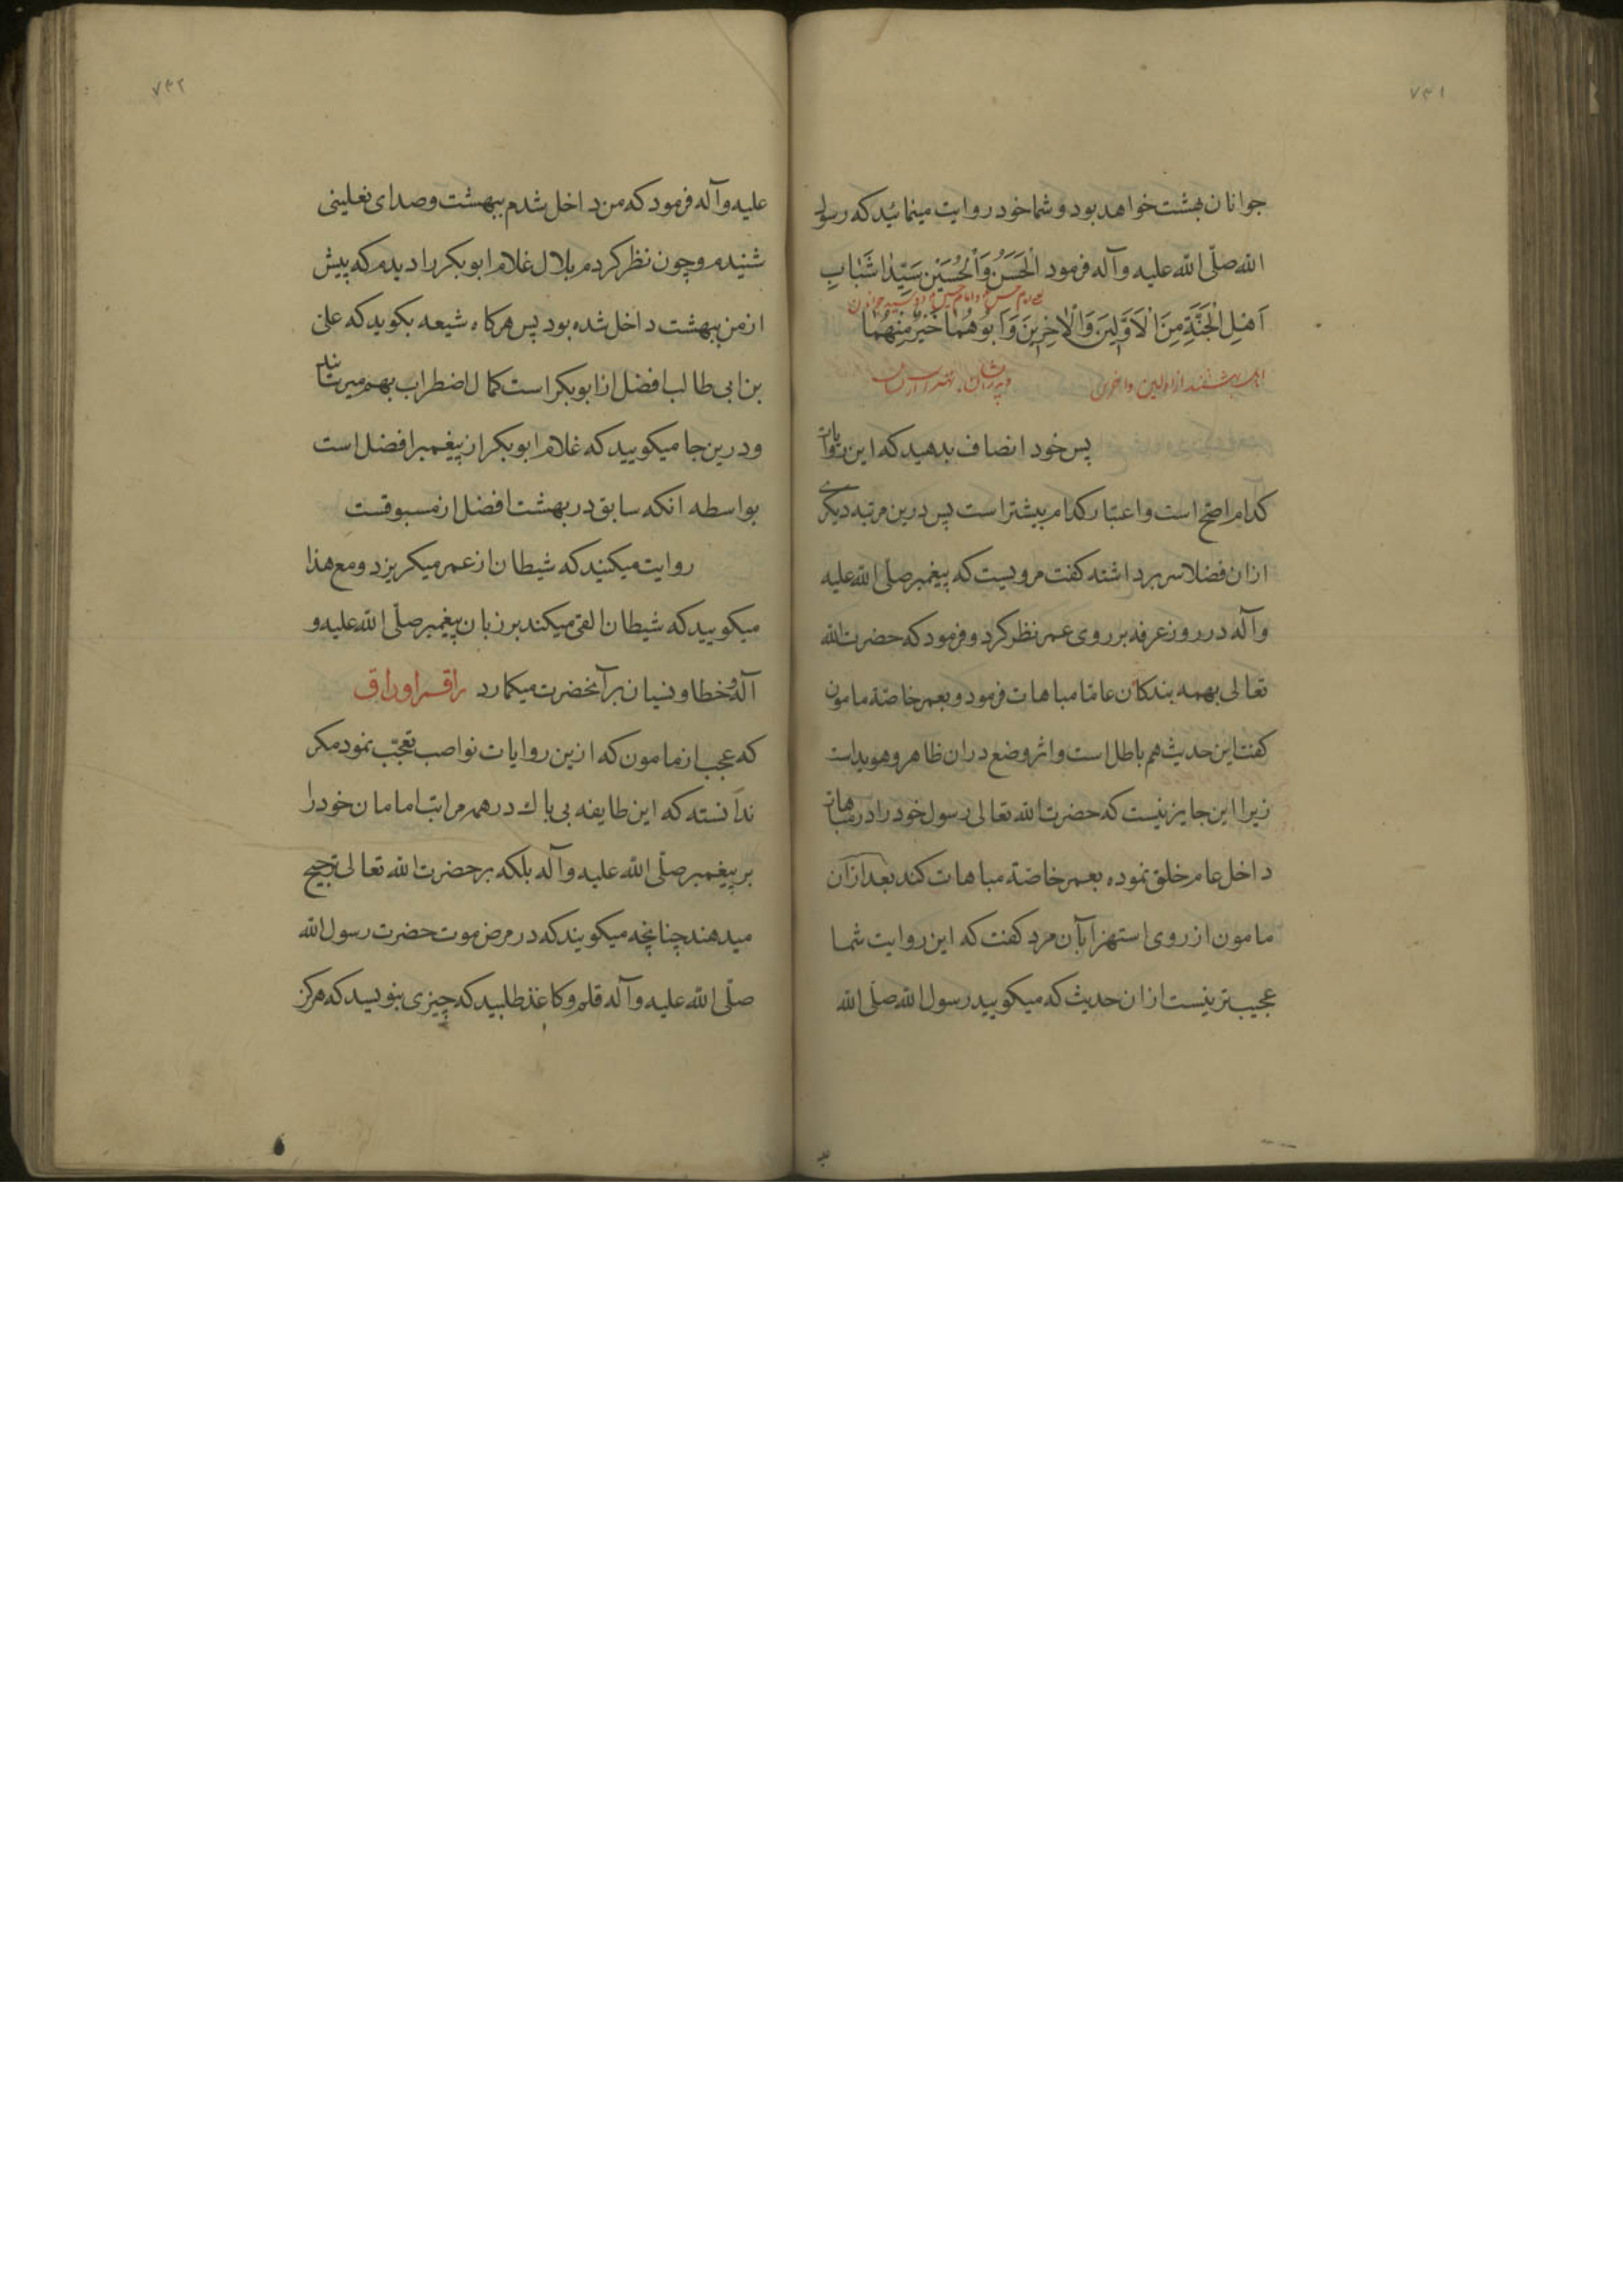 ۷۴۱
جوانان بهشت خواهد بود و شما خود روایت مینمائید که رسول
الله صلّی الله علیه وآله فرمود اَلْحَسَنُ وَالْحُسَیْنِ سَیِّدٰا شَبٰابِ
امام حسن و امام حسین دو سید جوانان
اَهْلِ الْجَنَّةِ مِنَ الْاَوَّلِینَ وَالْاٰخِرِینَ وَاَبُوهُمٰا خَیْرٌ مِنْهُمٰا
اهل بهشتند از اولین و اخرین و پدرشان بهتر از ایشان
پس خود انصاف بدهید که این روایات
کدام اصح است و اعتبار کدام بیشتر است پس درین مرتبه دیگری
ازان فضلا سر برداشته کفت مرویست که پیغمبر صلی الله علیه
وآله در روز عرفه بر روی عمر نظر کرد و فرمود که حضرت الله
تعالی بهمه بندکان عامّا مباهات فرمود و بعمر خاصّة مامون
کفت این حدیث هم باطل است و اثر وضع دران ظاهر و هویداست
زیرا این جایز نیست که حضرت الله تعالی رسول خود را در مباهات
داخل عام خلق نموده بعمر خاصّة مباهات کند بعد ازان
مامون از روی استهزا بآن مرد کفت که این روایت شما
عجیب تر نیست ازان حدیث که میکویید رسول الله صلّی الله
۷۴۲
علیه وآله فرمود که من داخل شدم ببهشت و صدای نعلینی
شنیدم و چون نظر کردم بلال غلام ابوبکر را دیدم که پیش
از من ببهشت داخل شده بود پس هرکاه شیعه بکوید که علی
بن ابی طالب افضل از ابوبکر است کمال اضطراب بهم میرسانید
و درین جا میکویید که غلام ابوبکر از پیغمبر افضل است
بواسطه انکه سابق در بهشت افضل از مسبوقست
روایت میکنید که شیطان از عمر میکریزد و مع هذا
میکویید که شیطان القی میکند بر زبان پیغمبر صلّی الله علیه و
آله و خطا و نسیان بر آنحضرت میکمارد راقم اوراق
که عجب از مامون که ازین روایات نواصب تعجّب نمود مکر
ندانسته که این طایفه بی باک در همه مراتب امامان خود را
بر پیغمبر صلّی الله علیه وآله بلکه بر حضرت الله تعالی ترجیح
میدهند چنانچه میکویند که در مرض موت حضرت رسول الله
صلّی الله علیه وآله قلم و کاغذ طلبید که چیزی بنویسد که هرکز